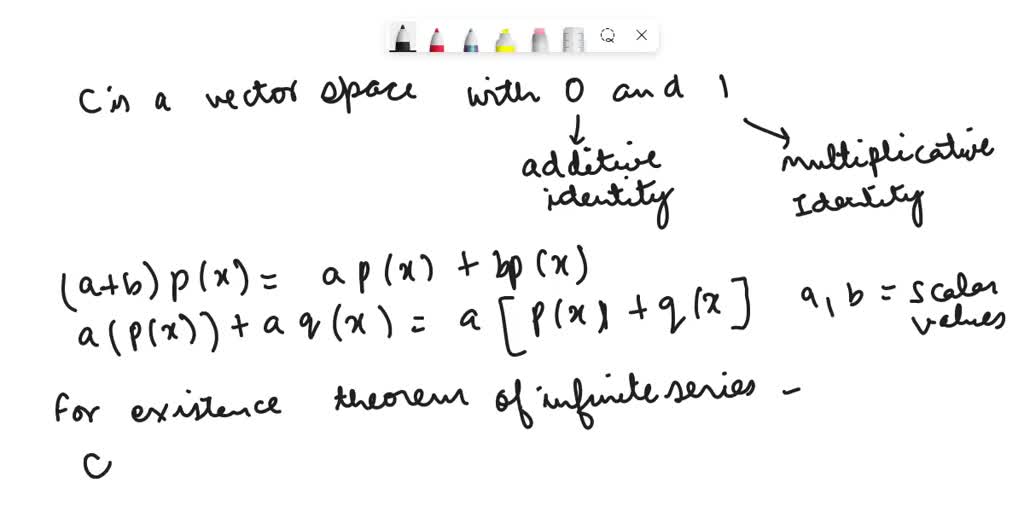 C is a vector space with 0 and 1
additive identity
multiplicative Identity
(a+b) p(x) = a p(x) + bp(x)
a(p(x)) + a q(x) = a [p(x) + q(x]
a, b = scalar values
For existence theorem of infinite series -
C